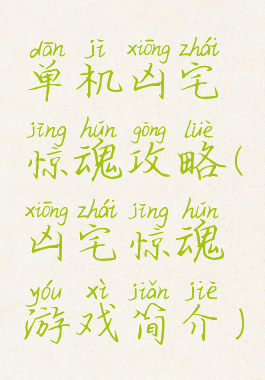 dān jī xiōng zhái
单机凶宅
jīng hún gōng lüè
惊魂攻略(
xiōng zhái jīng hún
凶宅惊魂
yóu xì jiǎn jiè
游戏简介)